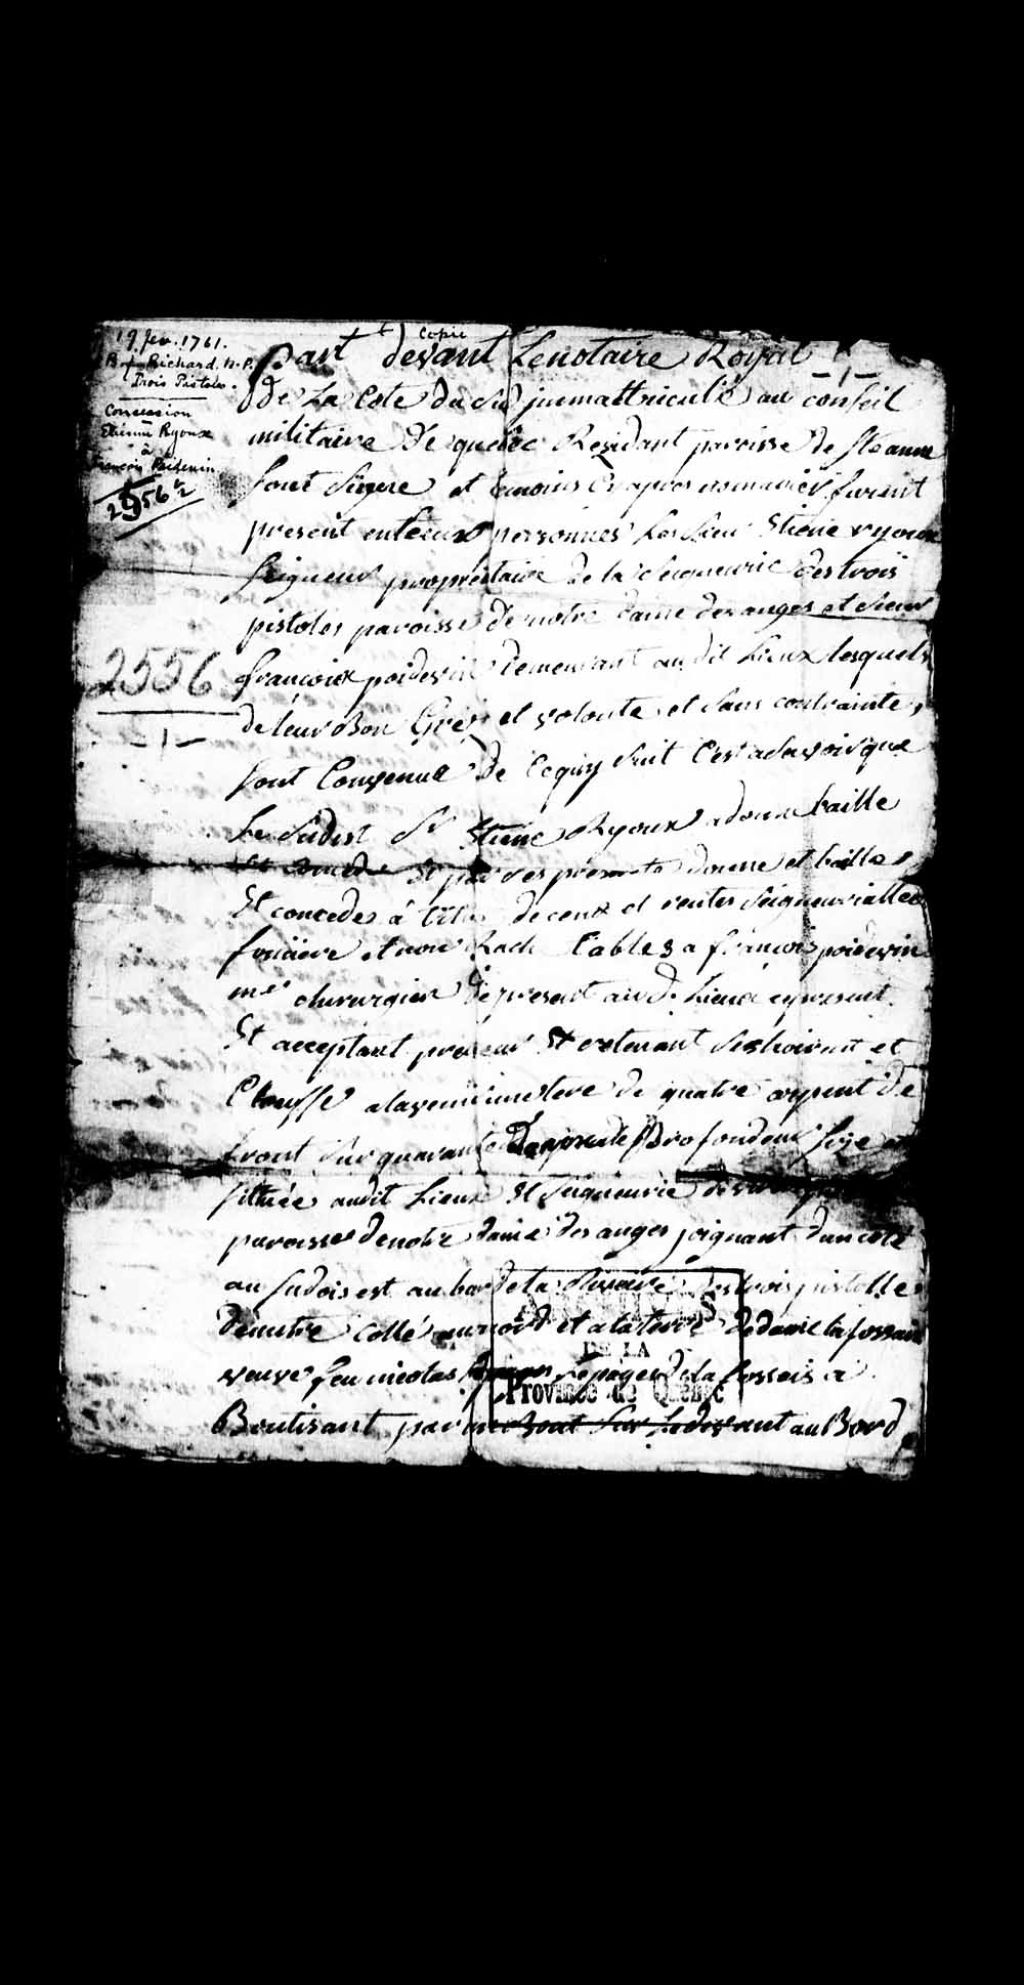 19 fev. 1761.
B. J. Richard. N. P.
Trois Pistoles.
Concession
Etienne Ryoux
à
François Poitevin
2556½
2556
-1-
Copie
Part devant Lenotaire Royal
-1-
De La Cote du Sud juemattriculé au conseil
militaire De quebec Residant paroisse de Ste anne
sout Signe et temoins Cy apres nommer furent
present enleurs personnes Les Sieur Etiene ryoux
Seigneur proprietaire de la Seigneurie des trois
pistoles paroisse de notre dame des anges et Sieur
françoix poidevin demeurant audit Lieux lesquels
de leur Bon Gré et volonte et Sans contrainte
Sont Convenue De Cequy Suit C'est a Savoir que
Le Sudist Sr Etiene Ryoux adonne baille
et par ses presente donne et baille
Et concedes á titre de cens et rentes Seigneurialles
fonciere et non Rach tables a françois poidevin
me chirurgien De present aud. Lieux cy present
Et acceptant preneur Et retenant et
alavenir de quatre arpent De
front Sur quarante Profondeur Size
sittuée audit Lieux Et Seigneurie
paroisse denotre dame des anges joignant d'un coté
au Sudoisest au bord de la Riviere des trois pistolle
Deautre Collé au nord et alaterre De dame
veuve feu nicolas Lepage De la fosses a
Boutisant par un Bout Sur Ledevant au Bord
ARCHIVES
DE LA
Province de Québec